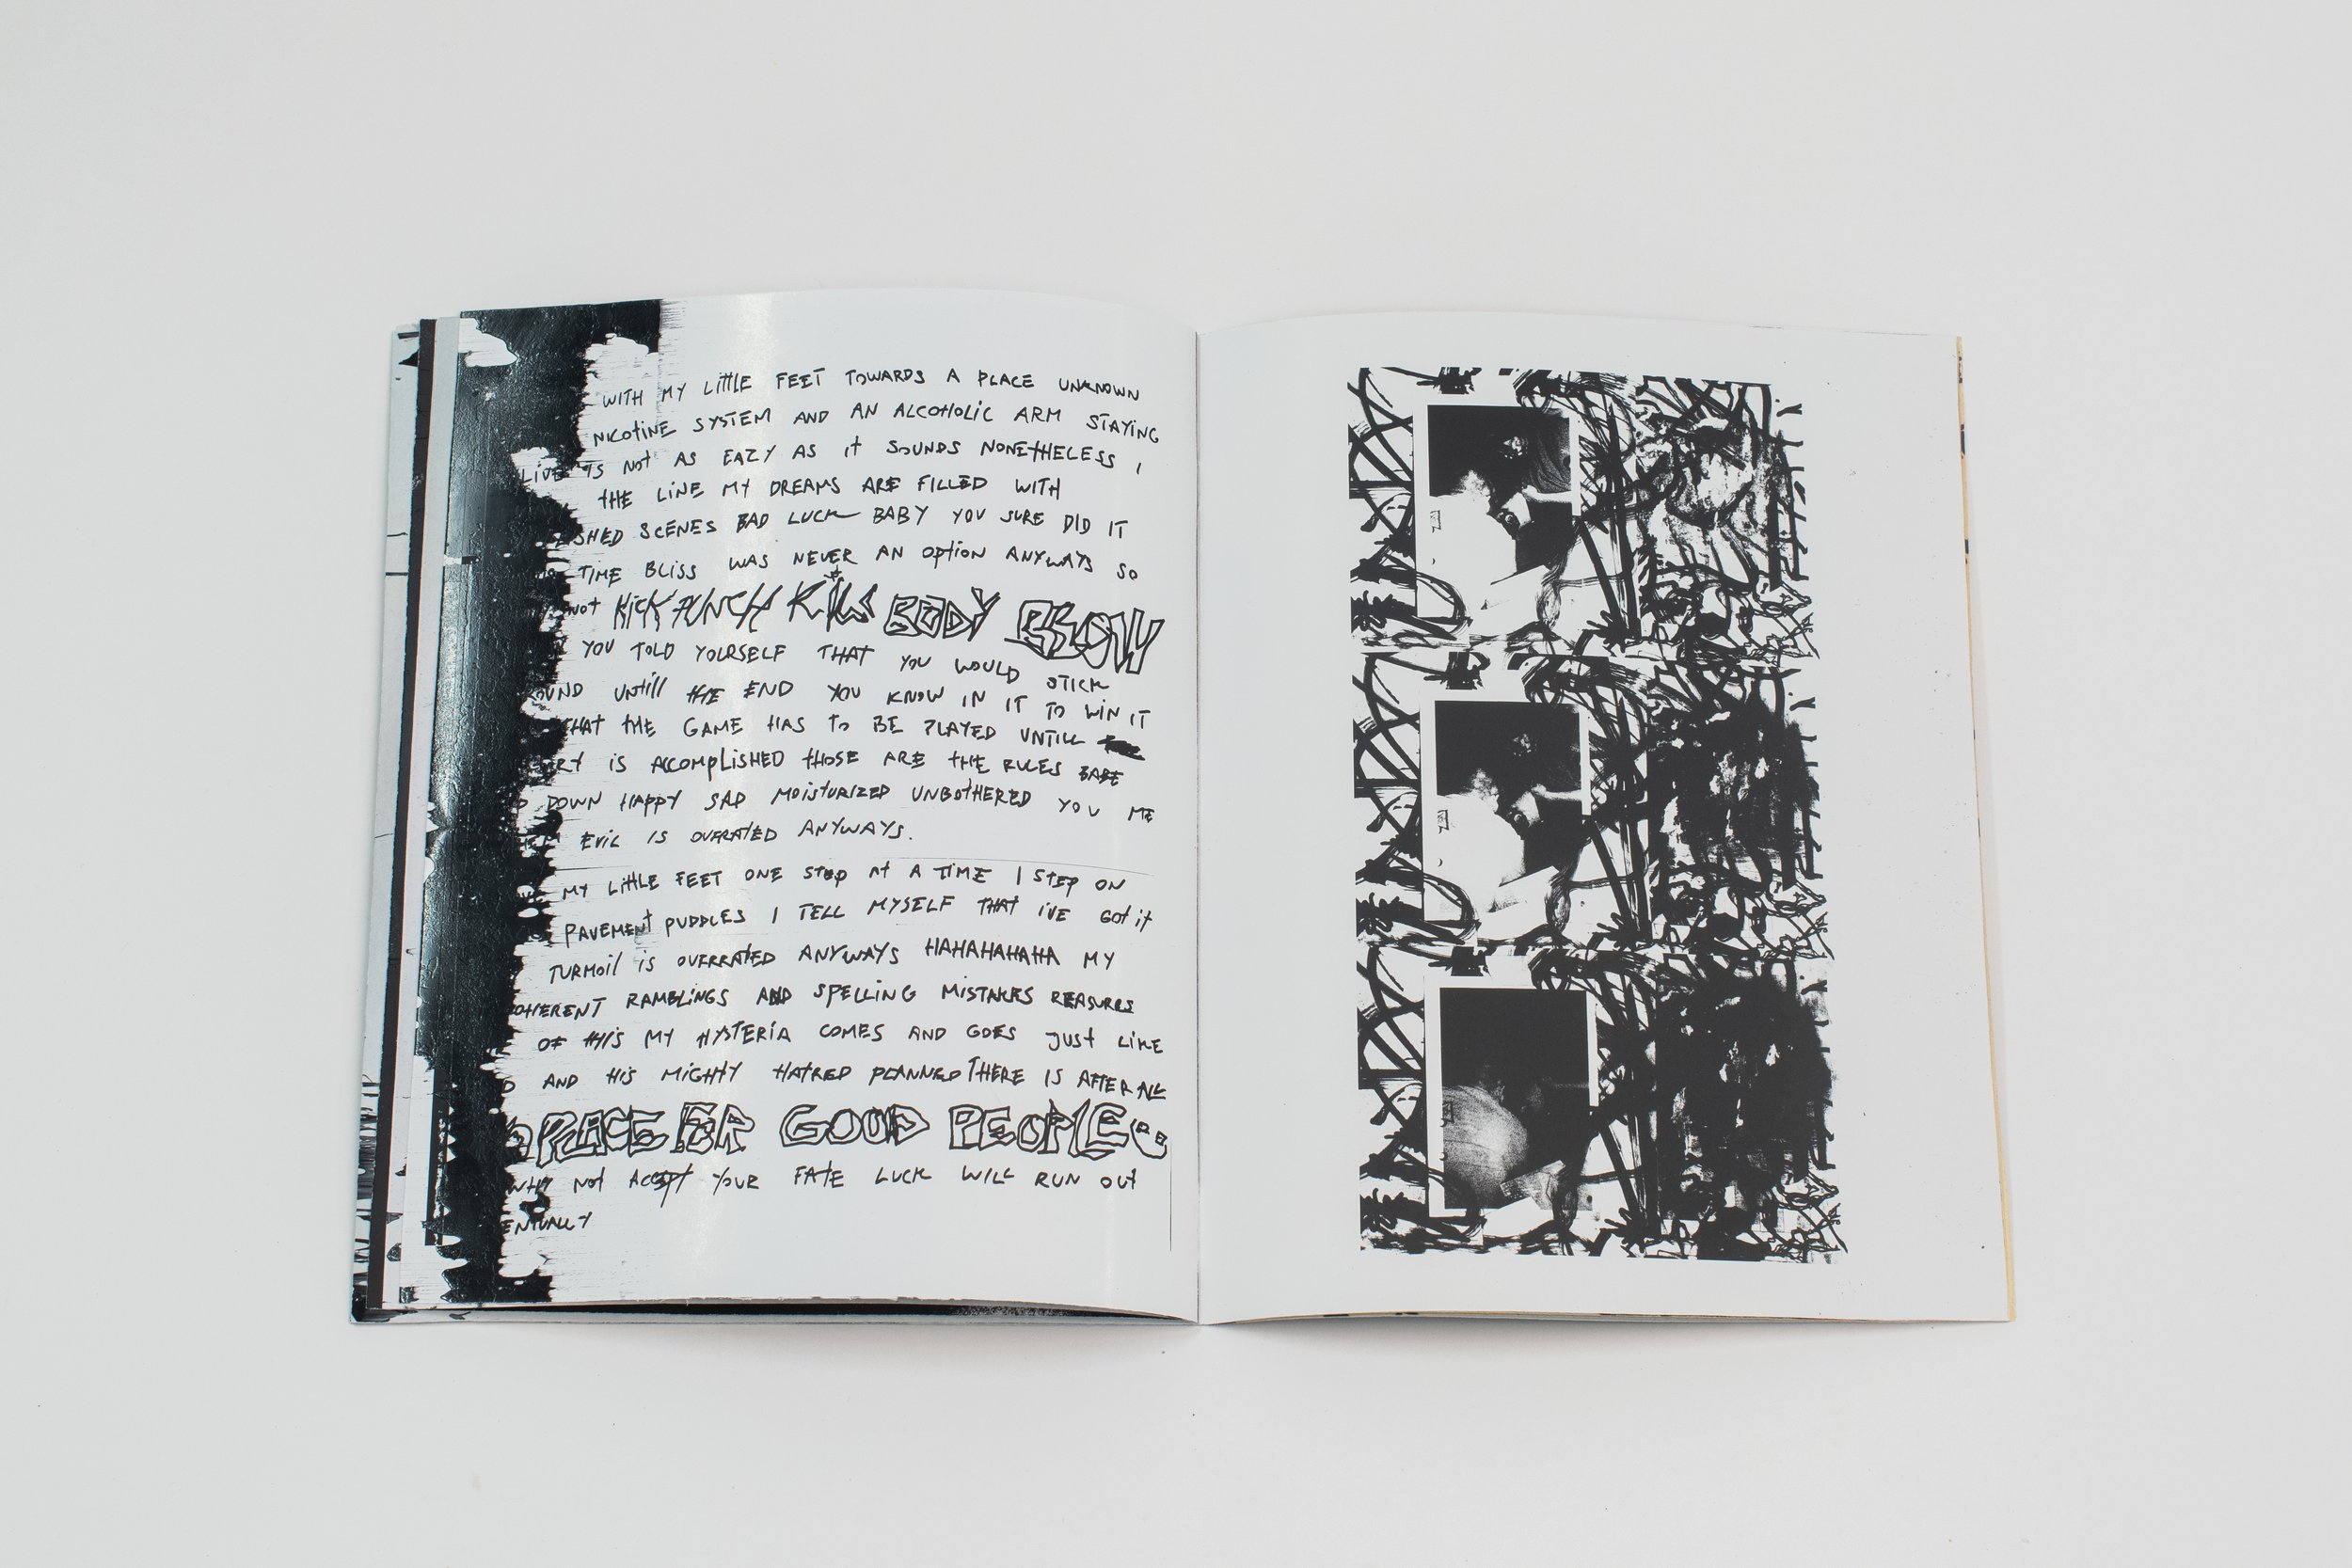 WITH MY LITTLE FEET TOWARDS A PLACE UNKNOWN
NICOTINE SYSTEM AND AN ALCOHOLIC ARM STAYING
LIVE IS NOT AS EAZY AS IT SOUNDS NONETHELESS I
THE LINE MY DREAMS ARE FILLED WITH
SHED SCENES BAD LUCK BABY YOU SURE DID IT
TIME BLISS WAS NEVER AN OPTION ANYWAYS SO
NOT KICK PUNCH KILL BODY BLOW
YOU TOLD YOURSELF THAT YOU WOULD STICK
OUND UNTILL THE END YOU KNOW IN IT TO WIN IT
THAT THE GAME HAS TO BE PLAYED UNTILL
IS ACCOMPLISHED THOSE ARE THE RULES BABE
DOWN HAPPY SAD MOISTURIZED UNBOTHERED YOU ME
EVIL IS OVERATED ANYWAYS.
MY LITTLE FEET ONE STEP AT A TIME I STEP ON
PAVEMENT PUDDLES I TELL MYSELF THAT I'VE GOT IT
TURMOIL IS OVERRATED ANYWAYS HAHAHAHAHA MY
OHERENT RAMBLINGS AND SPELLING MISTAKES REASURES
OF THIS MY HYSTERIA COMES AND GOES JUST LIKE
AND HIS MIGHTY HATRED PLANNED THERE IS AFTER ALL
PLACE FOR GOOD PEOPLE
WHY NOT ACCEPT YOUR FATE LUCK WILL RUN OUT
ENTUALLY